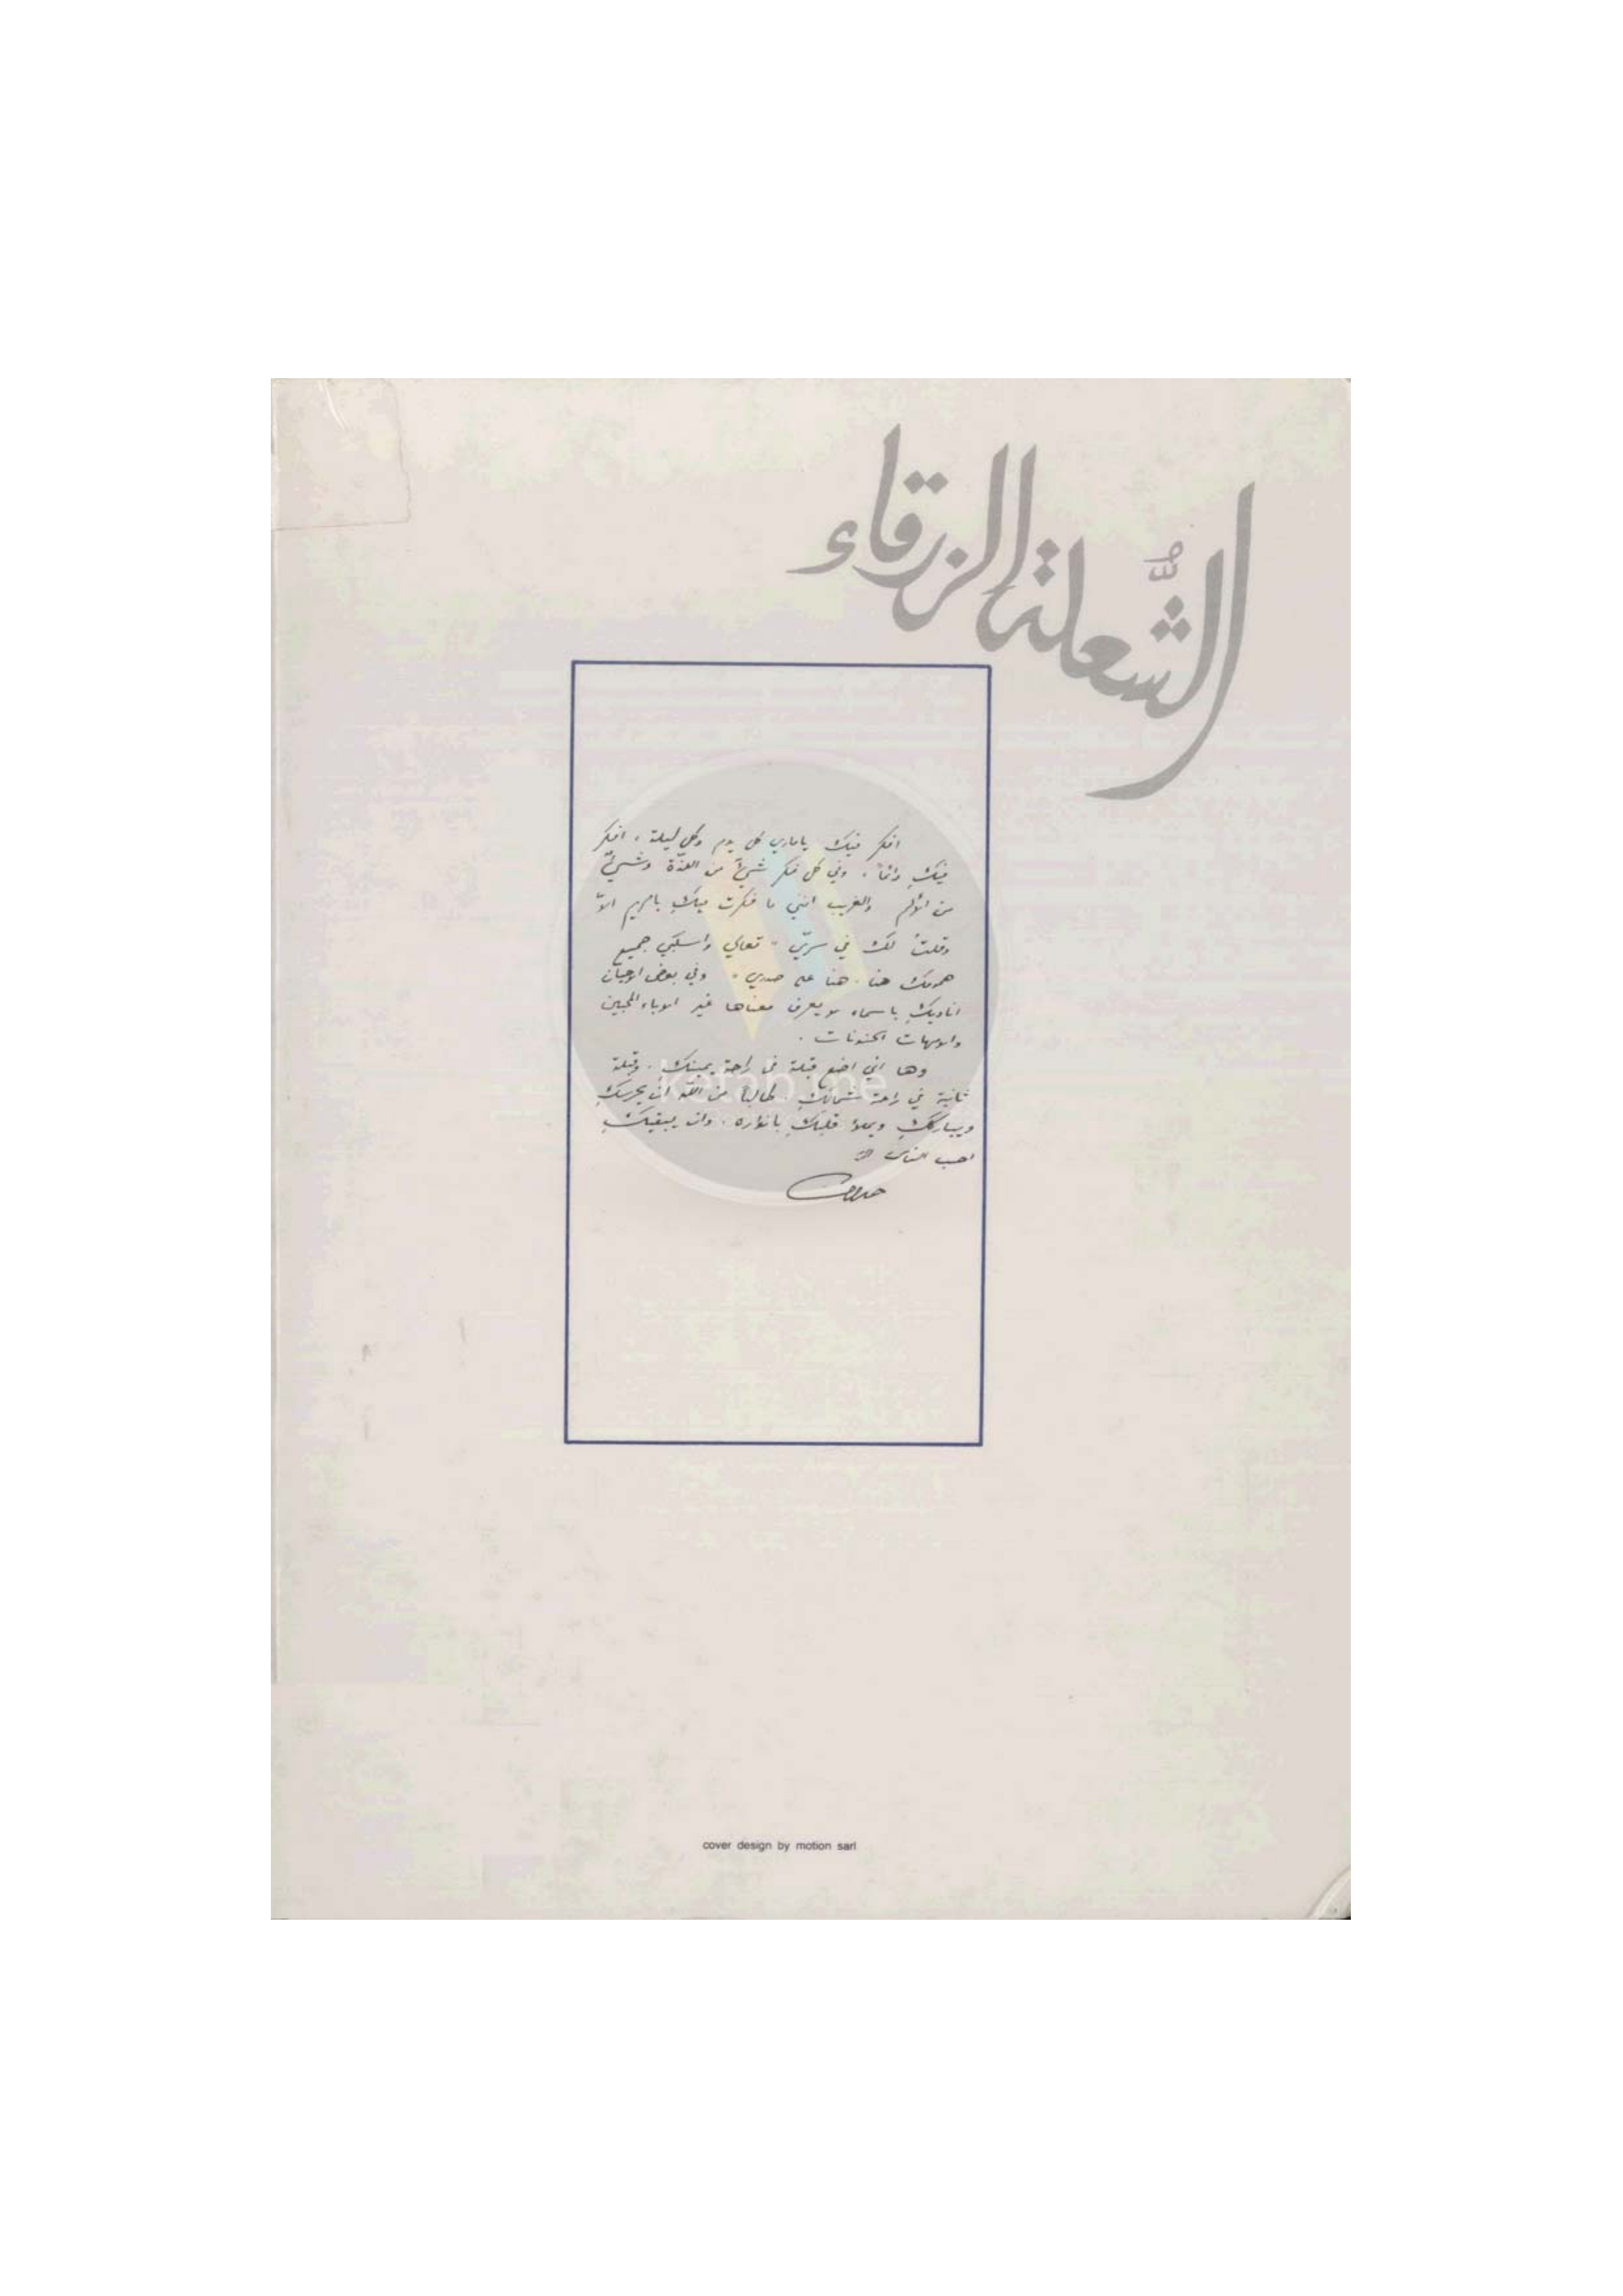 الشُّعلة الزرقاء
افكر فيك يا ماري كل يوم وكل ليلة، افكر
فيكِ دائماً، وفي كل فكر شيءٌ من اللذّة وشيءٌ
من الألم والغريب انني ما فكرت فيكِ يا مريم الاّ
وقلتُ لك في سرّي "تعالي واسكبي جميع
همومك هنا، هنا على صدري" وفي بعض الاحيان
اناديكِ باسماء لا يعرف معناها غير الاباء المحبين
والامهات الحنونات.
وها اني اضع قبلة في راحة يمينكِ، وقبلة
ثانية في راحة شمالكِ، طالباً من اللّه ان يحرسكِ
ويباركك ويملأ قلبكِ بانواره، وان يبقيكِ
احب الناس الى
جبران
ketabb.me
cover design by motion sarl